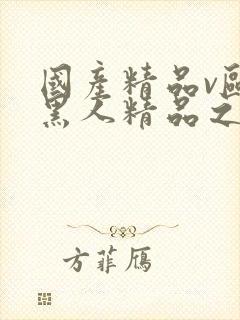 國產精品v區
黑人精品之
方菲鴈